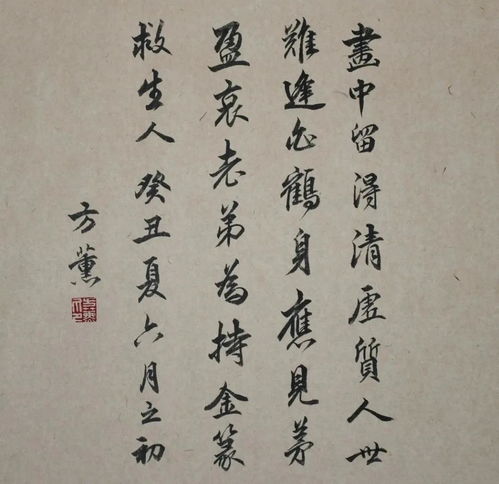 畫中留得清虛質人世
難逢白鶴身應見茅
盈衷老弟為持金籙
救生人癸丑夏六月之初
方薰